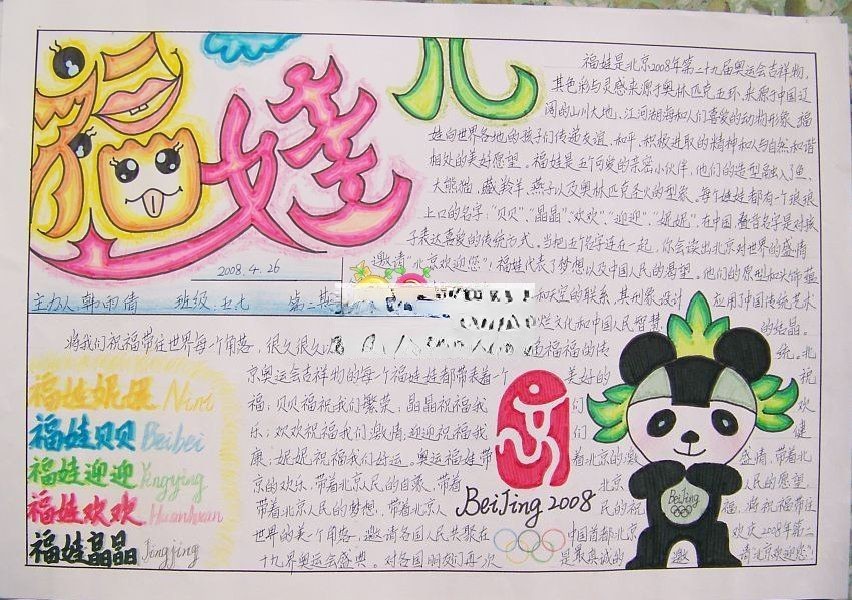 福娃儿
福娃是北京2008年第二十九届奥运会吉祥物,
其色彩与灵感来源于奥林匹克五环,来源于中国辽
阔的山川大地、江河湖海和人们喜爱的动物形象。福
娃向世界各地的孩子们传递友谊、和平、积极进取的精神和人与自然和谐
相处的美好愿望。福娃是五个可爱的亲密小伙伴,他们的造型融入了鱼、
大熊猫、藏羚羊、燕子以及奥林匹克圣火的型象。每个娃娃都有一个琅琅
上口的名字:"贝贝"、"晶晶"、"欢欢"、"迎迎"、"妮妮",在中国,叠音名字是对孩
子表达喜爱的传统方式。当把五个名字连在一起,你会读出北京对世界的盛情
邀请"北京欢迎您"!福娃代表了梦想以及中国人民的渴望。他们的原型和头饰蕴
2008.4.26
主力人:韩雨倩 班级:五七 第二期
和天空的联系,其形象设计应用了中国传统艺术
烂文化和中国人民智慧的结晶。
将我们祝福带往世界每个角落,很久很久以
福福的传统。北
京奥运会吉祥物的每个福娃娃都带来着一个美好的祝
福:贝贝福祝我们繁荣;晶晶祝福我们欢
乐;欢欢祝福我们激情;迎迎祝福我们健
康;妮妮祝福我们好运。奥运福娃带着北京的激盛情,带着北
京的欢乐,带着北京人民的自豪,带着北京人民的愿望,
带着北京人民的梦想,带着北京人民的祝福,将祝福带往
世界的美个角落,邀请各国人民共聚在中国首都北京,欢庆2008年第二
十九界奥运会盛典。对各国朋友们再次是最真诚的邀请"北京欢迎您"!
福娃妮妮 Nini
福娃贝贝 Beibei
福娃迎迎 Yingying
福娃欢欢 Huanhuan
福娃晶晶 Jingjing
BeiJing 2008
BeiJing